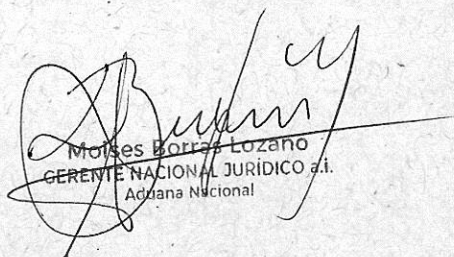 Moises Borras Lozano
GERENTE NACIONAL JURÍDICO a.i.
Aduana Nacional